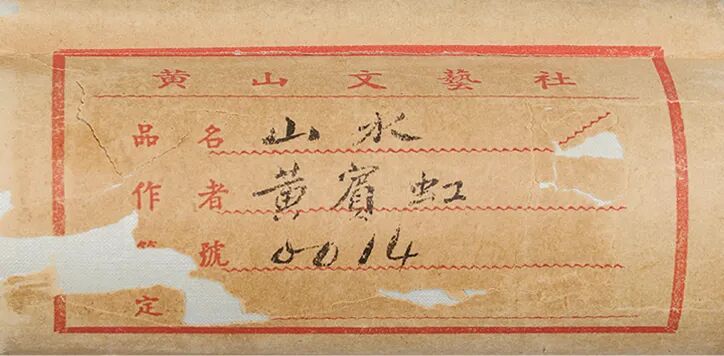 黄山文藝社
品名 山水
作者 黄賓虹
號 0014
定